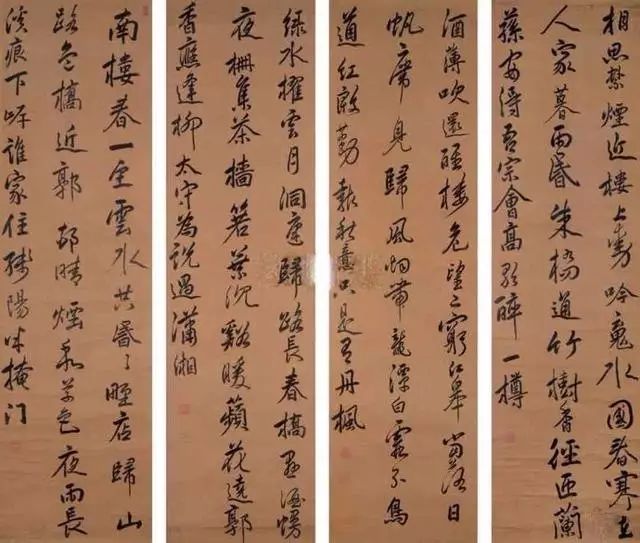 相思禁煙近樓上動吟䰟水國春寒在
人家暮雨昏朱橋通竹樹香徑匝蘭
蓀安得吾宗會高歌醉一樽
酒薄吹還醒樓危望已窮江皋當落日
帆席見歸風烟帶龍潭白霞分鳥
道紅殷勤報秋意只是有丹楓
綠水櫂雲月洞庭歸路長春橋垂酒幔
夜柵集茶檣箬葉沉谿暖蘋花遶郭
香應逢柳太守為說過瀟湘
南樓春一望雲水共昏〻野店歸山
路危橋近郭邨晴煙和草色夜雨長
溪痕下岸誰家住殘陽半掩门